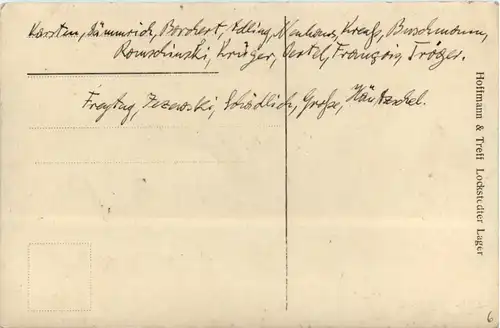 Karsten, Dämmrich, Borchert, Adling, Neuhaus, Kreß, Buschmann,
Romschinski, Krüger, Oertel, François, Tröger.
Freytag, Jezewski, Schädlich, Große,
Hoffmann & Treff Lockstedter Lager
6